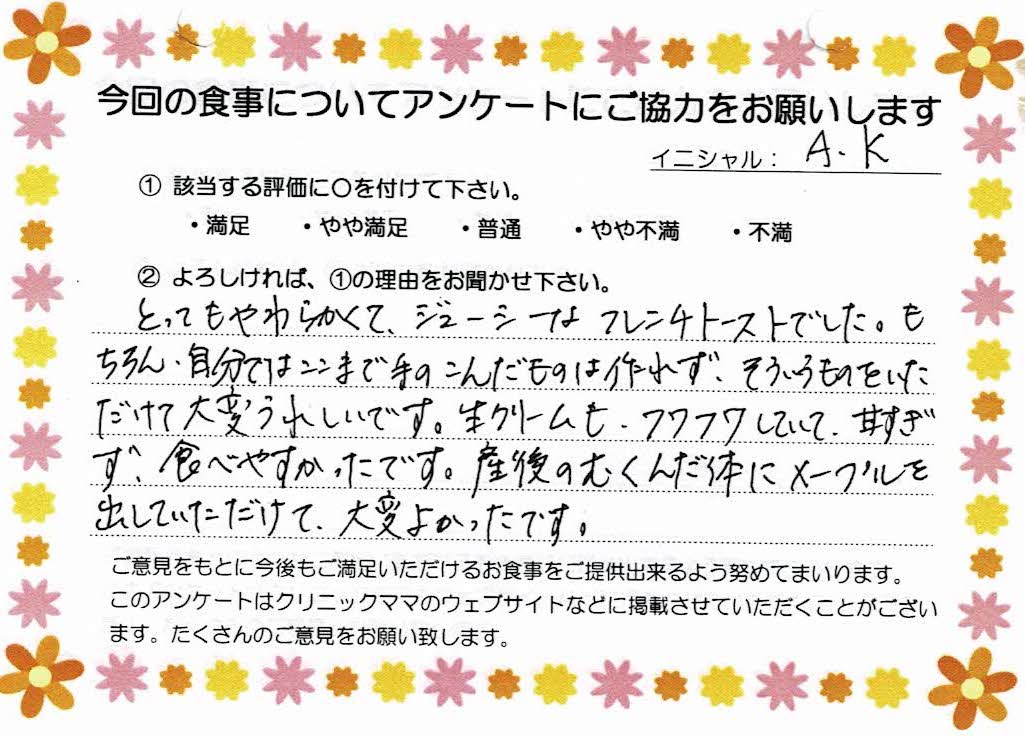 今回の食事についてアンケートにご協力をお願いします
イニシャル： A.K
① 該当する評価に〇を付けて下さい。
・満足 ・やや満足 ・普通 ・やや不満 ・不満
② よろしければ、①の理由をお聞かせ下さい。
とってもやわらかくて、ジューシーな フレンチトーストでした。も
ちろん、自分ではここまで手のこんだものは作れず、そういうものをいた
だけて大変うれしいです。生クリームも、フワフワしていて、甘すぎ
ず、食べやすかったです。産後のむくんだ体にメープルを
出していただけて、大変よかったです。
ご意見をもとに今後もご満足いただけるお食事をご提供出来るよう努めてまいります。
このアンケートはクリニックママのウェブサイトなどに掲載させていただくことがござい
ます。たくさんのご意見をお願い致します。